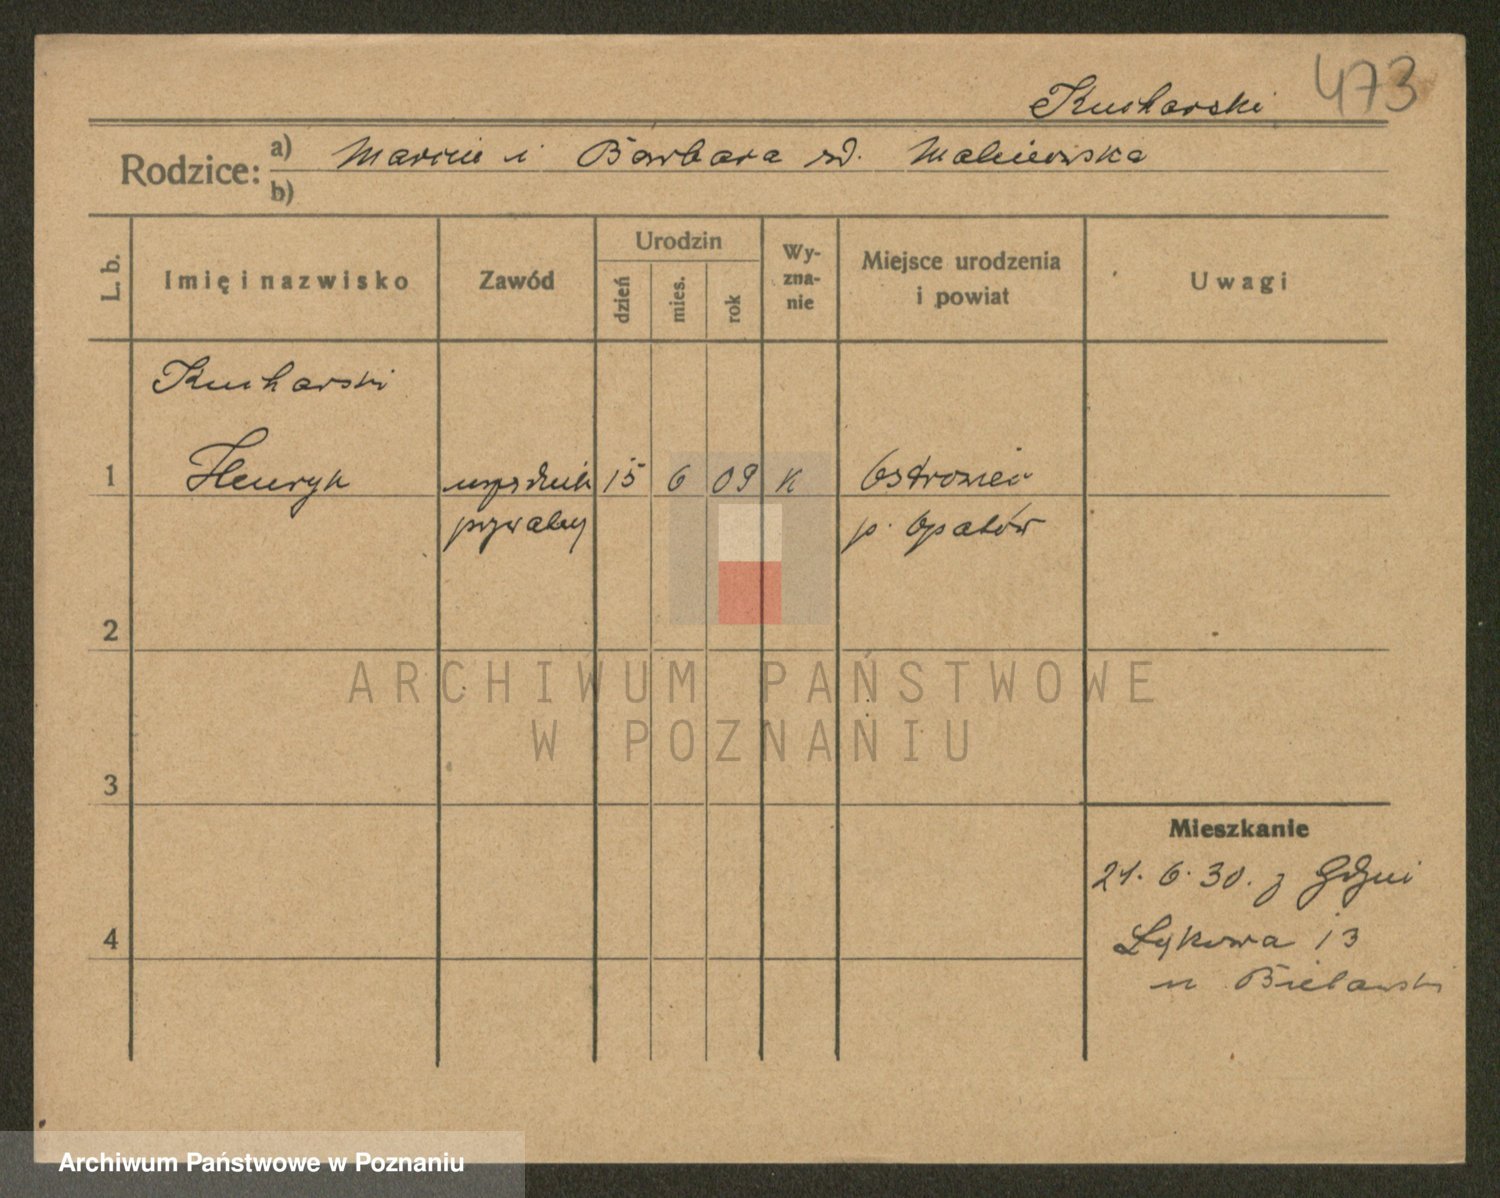 473
Kucharski
Rodzice: a) Marcin i Barbara zd. Maleiewska
b)
L. b.
Imię i nazwisko
Zawód
Urodzin
dzień
mies.
rok
Wy-
zna-
nie
Miejsce urodzenia
i powiat
Uwagi
Kucharski
1 Henryk urzędnik 15 6 09 k Ostrowiec
prywatny p. Opatów
2
3
4
ARCHIWUM PAŃSTWOWE
W POZNANIU
Mieszkanie
21. 6. 30. z Gdyni
Łąkowa 13
u Bielawski
Archiwum Państwowe w Poznaniu